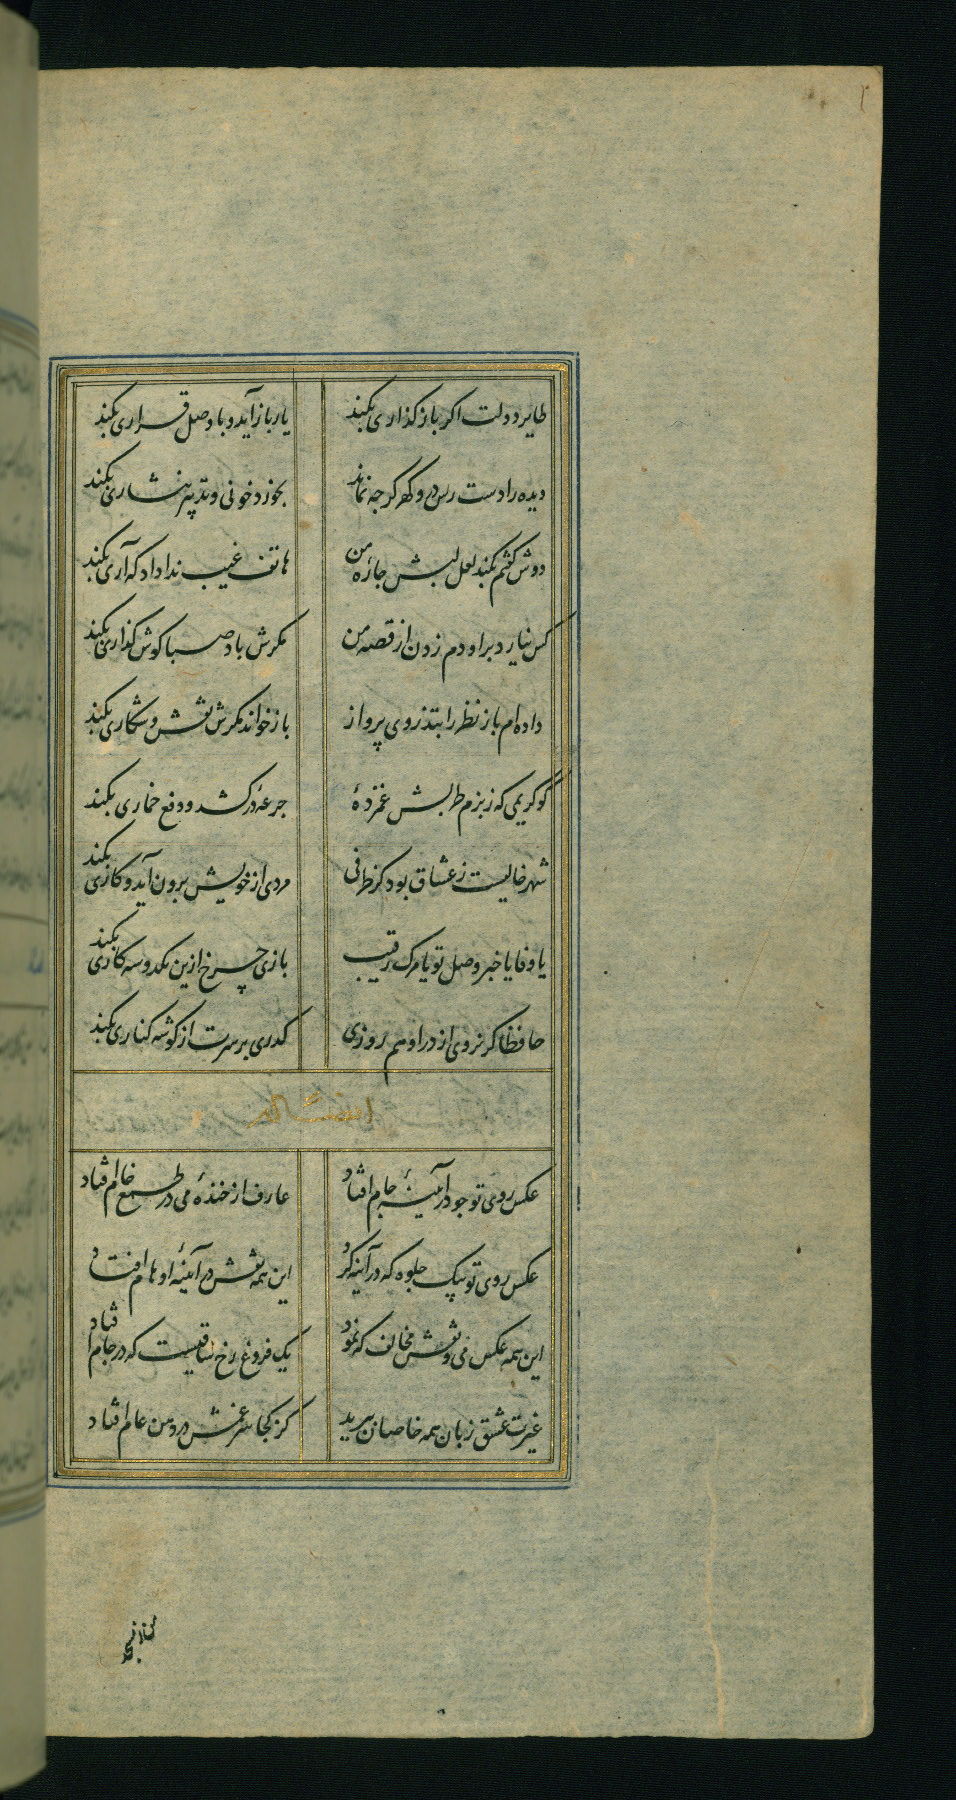 طایر دولت اکر باز کذاری بکند یار باز آید و با وصل قراری بکند
دیده را دست رس در و کهر کرچه نماند بخورد خونی و تدبیر نثاری بکند
دوش کفتم بکند لعل لبش چاره من هاتف غیب ندا داد که آری بکند
کس نیارد بر او دم زدن از قصه من مکرش باد صبا کوش کذاری بکند
داده ام باز نظر را بتذروی پرواز باز خواند مکرش نقش و شکاری بکند
کو کریمی که ز بزم طربش غمزدهٔ جرعهٔ درکشد و دفع خماری بکند
شهر خالیست ز عشاق بود کز طرفی مردی از خویش برون آید و کاری بکند
یا وفا یا خبر وصل تو یا مرک رقیب بازی چرخ ازین یکدوسه کاری بکند
حافظا کر نروی از در او هم روزی کذری بر سرت از کوشه کناری بکند
عکس روی تو چو در آینهٔ جام افتاد عارف از خندهٔ می در طمع خام افتاد
عکس روی تو بیک جلوه که در آینه کرد این همه نقش در آینهٔ اوهام افتاد
این همه عکس می و نقش مخالف که نمود یک فروغ رخ ساقیست که در جام افتاد
غیرت عشق زبان همه خاصان ببرید کز کجا سر غمش در دهن عام افتاد